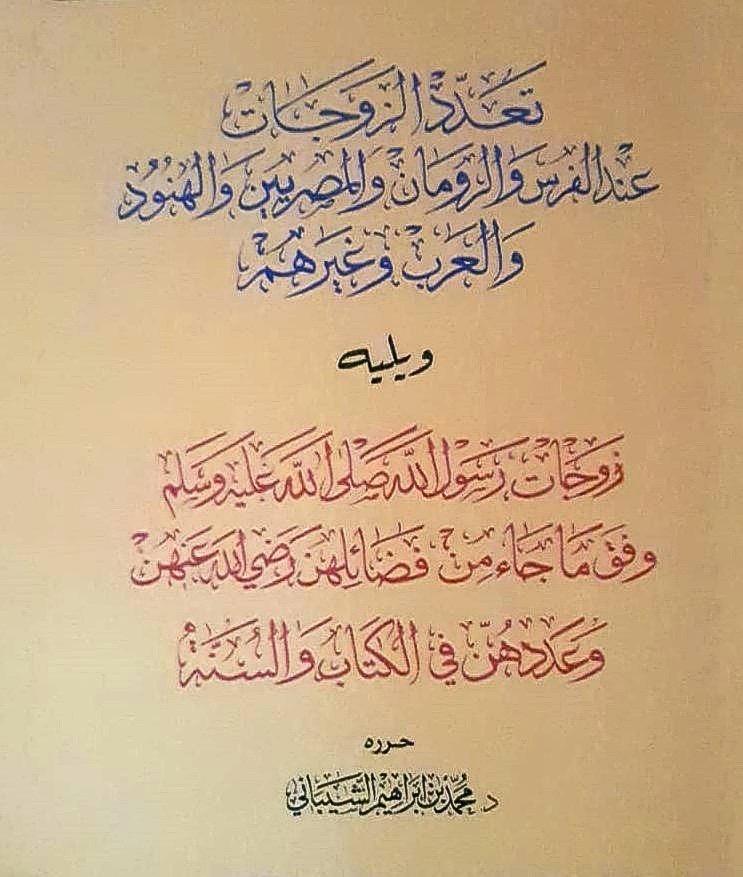 تعدد الزوجات
عند الفرس والرومان والمصريين والهنود
والعرب وغيرهم
ويليه
زوجات رسول الله صلى الله عليه وسلم
وفق ما جاء من فضائلهن رضي الله عنهن
وعددهن في الكتاب والسنة
حرره
د. محمد بن إبراهيم الشيباني